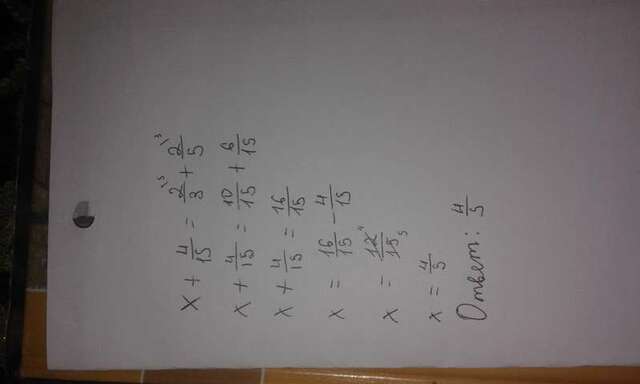 x + 4/15 = 2⁵/3 + 2³/5
x + 4/15 = 10/15 + 6/15
x + 4/15 = 16/15
x = 16/15 - 4/15
x = 12⁴/15₅
x = 4/5
Ответ: 4/5